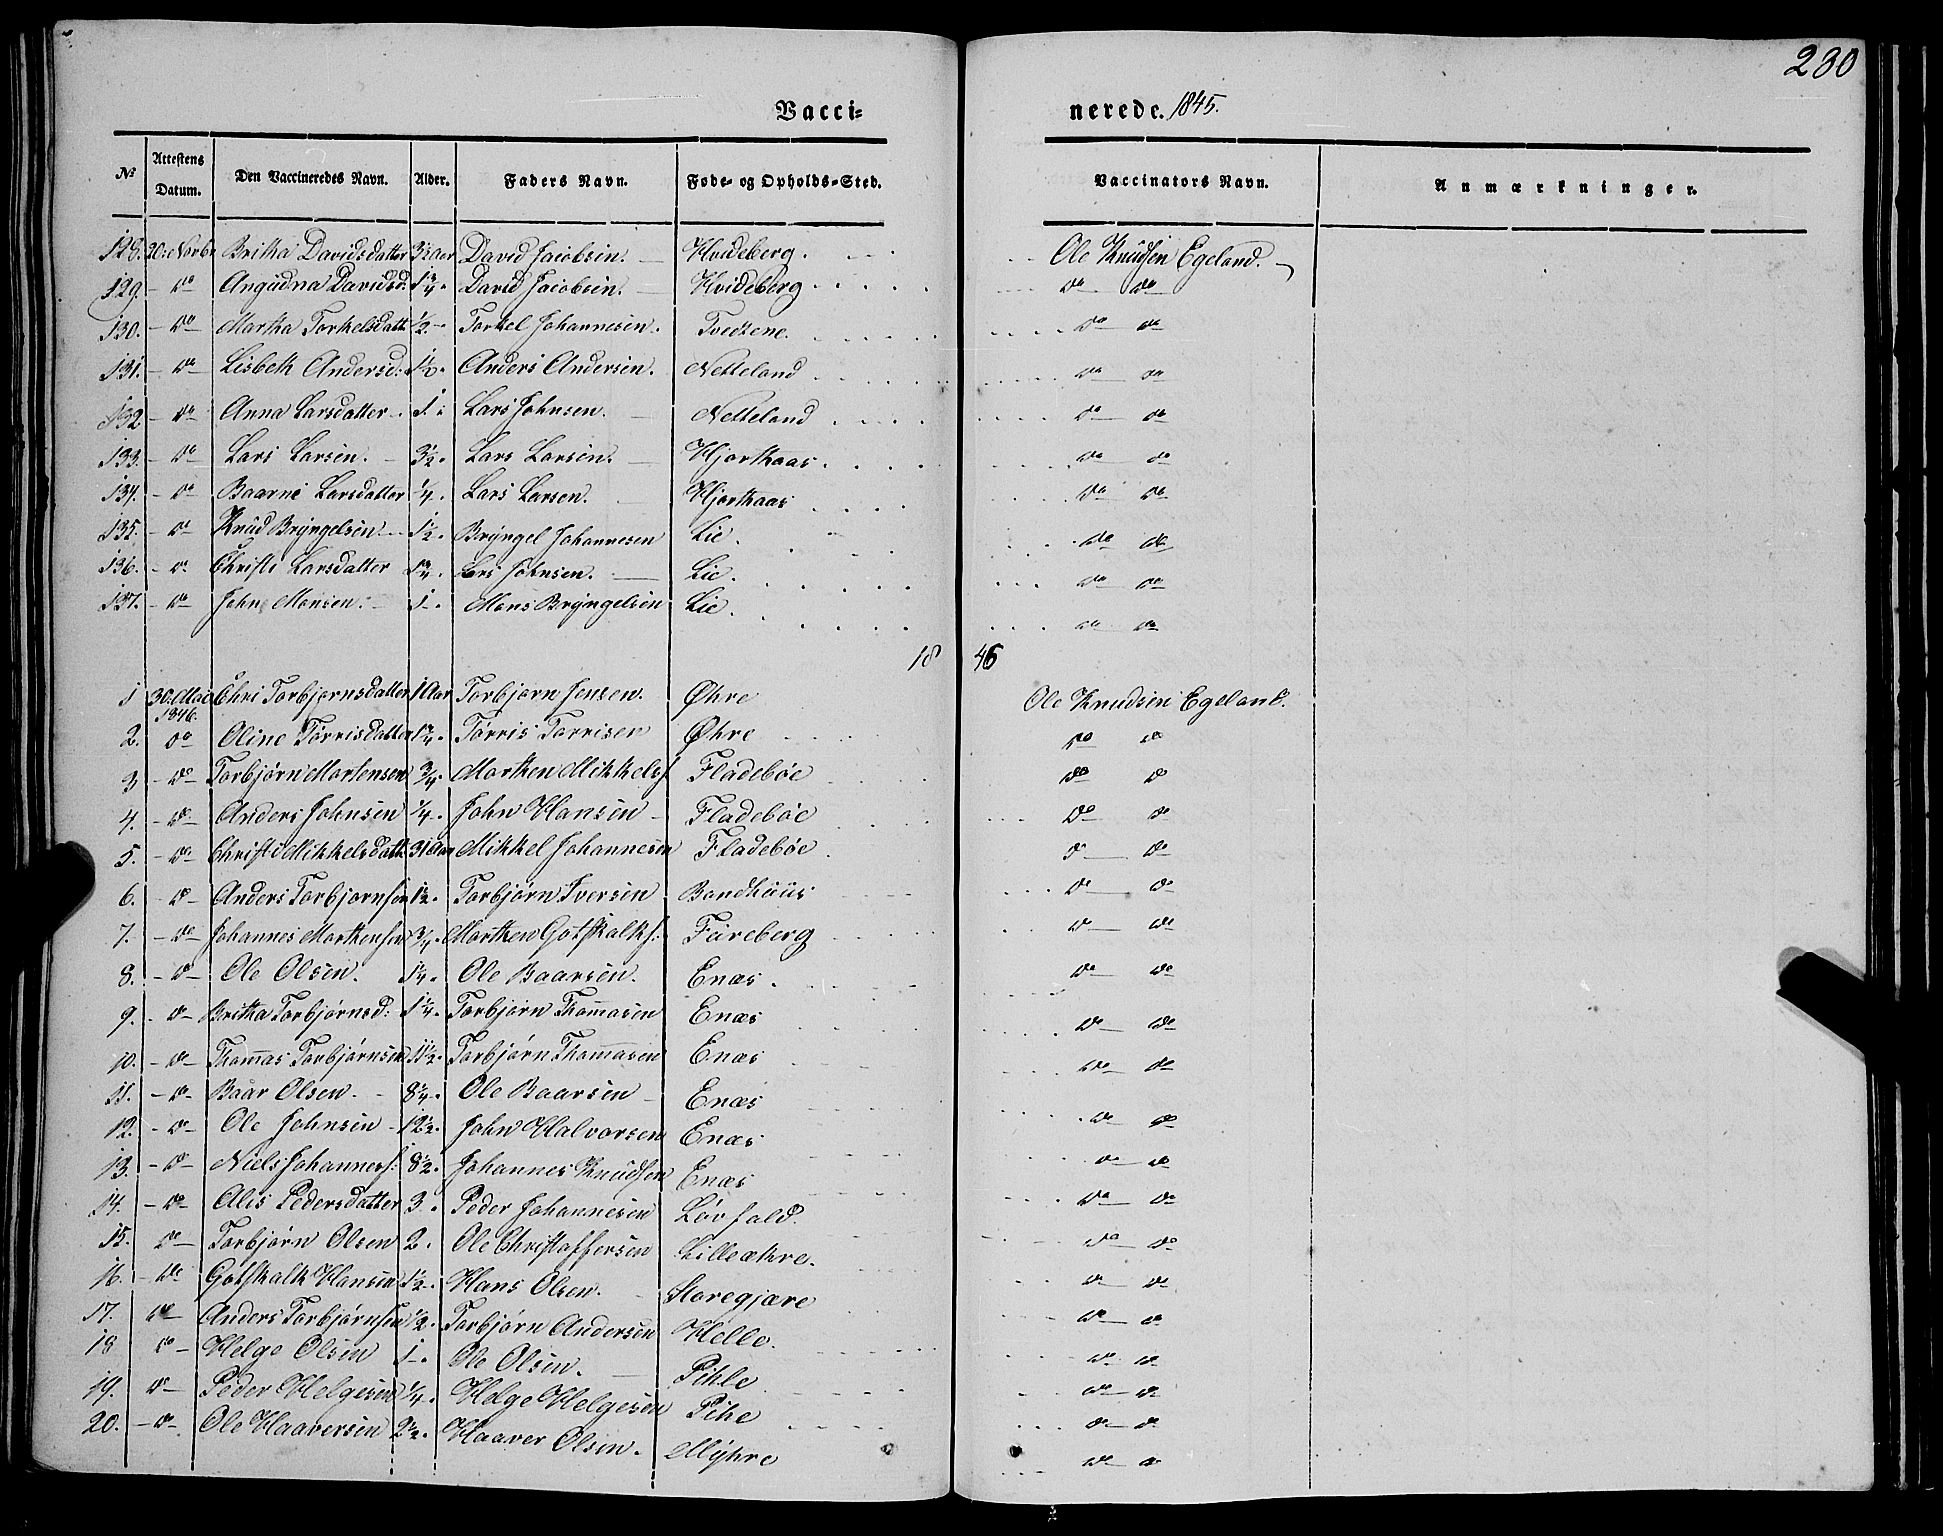 230
Vacci- nerede. 1845.
No Attestens Datum. Den Vaccineredes Navn. Alder. Faders Navn. Føde- og Opholds-Sted. Vaccinators Navn. Anmærkninger.
128. 20: Novbr Britha Davidsdatter 3½ Aar David Jacobsen. Hvideberg. Ole Knudsen Egeland.
129. - do Davidsd. 1¾. David Jacobsen. Hvideberg do do
130. - do Martha Torkelsdatt ½ - Torkel Johannesen. Tvedtene. do do
131. - do Lisbeth Andersd: 1½. Anders Andersen. Netteland do do
132 - do Anna Larsdatter - 1. Lars Johnsen. Netteland do do
133. - do Lars Larsen. 3½. Lars Larsen. Hjorthaas. do do
134. - do Baarni Larsdatter ¼. Lars Larsen. Hjorthaas do do
135. - do Knud Bryngelsen 1½. Bryngel Johannesen Lie. do do
136. - do Christi Larsdatter 1¾. Lars Johnsen. Lie. do do
137. - do John Monsen. 1 -. Mons Bryngelsen Lie. do do
18 46
1 30: Mai 1846. Torbjørnsdatter 1 Aar Torbjørn Jensen. Øhre Ole Knudsen Egeland.
2. do Oline Tørrisdatter 1¾. Tørris Tørrisen Øhre do do
3 - do Torbjørn Martensen ¾. Marthen Mikkels. Fladebøe do do
4. - do Anders Johnsen ¼. John Hansen - Fladebøe do do
5. - do Christi Mikkelsdatt. Mikkel Johannesen Fladebøe. do do
6. - do Anders Torbjørnsen 1½. Torbjørn Iversen Bondhuus do do
7. - do Johannes Marthensen ¾. Marthen Gotskalks: Fureberg do do
8. - do Ole Olsen. 1¼. Ole Baarsen. Enæs. do do
9. - do Britha Torbjørnsd: 1¼. Torbjørn Thomasen Enæs do do
10. - do Thomas Torbjørnsen 11½. Torbjørn Thomasen Enæs do do
11. - do Baar Olsen. - 8¼. Ole Baarsen - Enæs do do
12. - do Ole Johnsen - 12½. John Halvorsen Enæs do do
13. - do Niels Johanness: 8½. Johannes Knudsen Enæs do do
14. - do Alis Pedersdatter 3. Peder Johannesen Løvfald. do do
15. do Torbjørn Olsen 2. Ole Christoffersen Lilleækre. do do
16. - do Gotskalk Hansen 1½. Hans Olsen. Storegjære do do
17. do Anders Torbjørnsen ½. Torbjørn Andersen Helle. do do
18 do Helge Olsen 1 -. Ole Olsen. Pihle do do
19. do Peder Helgesen ¼. Helge Helgesen Pihe do do
20. - do Ole Haaversen 2½. Haaver Olsen. Myhre do do